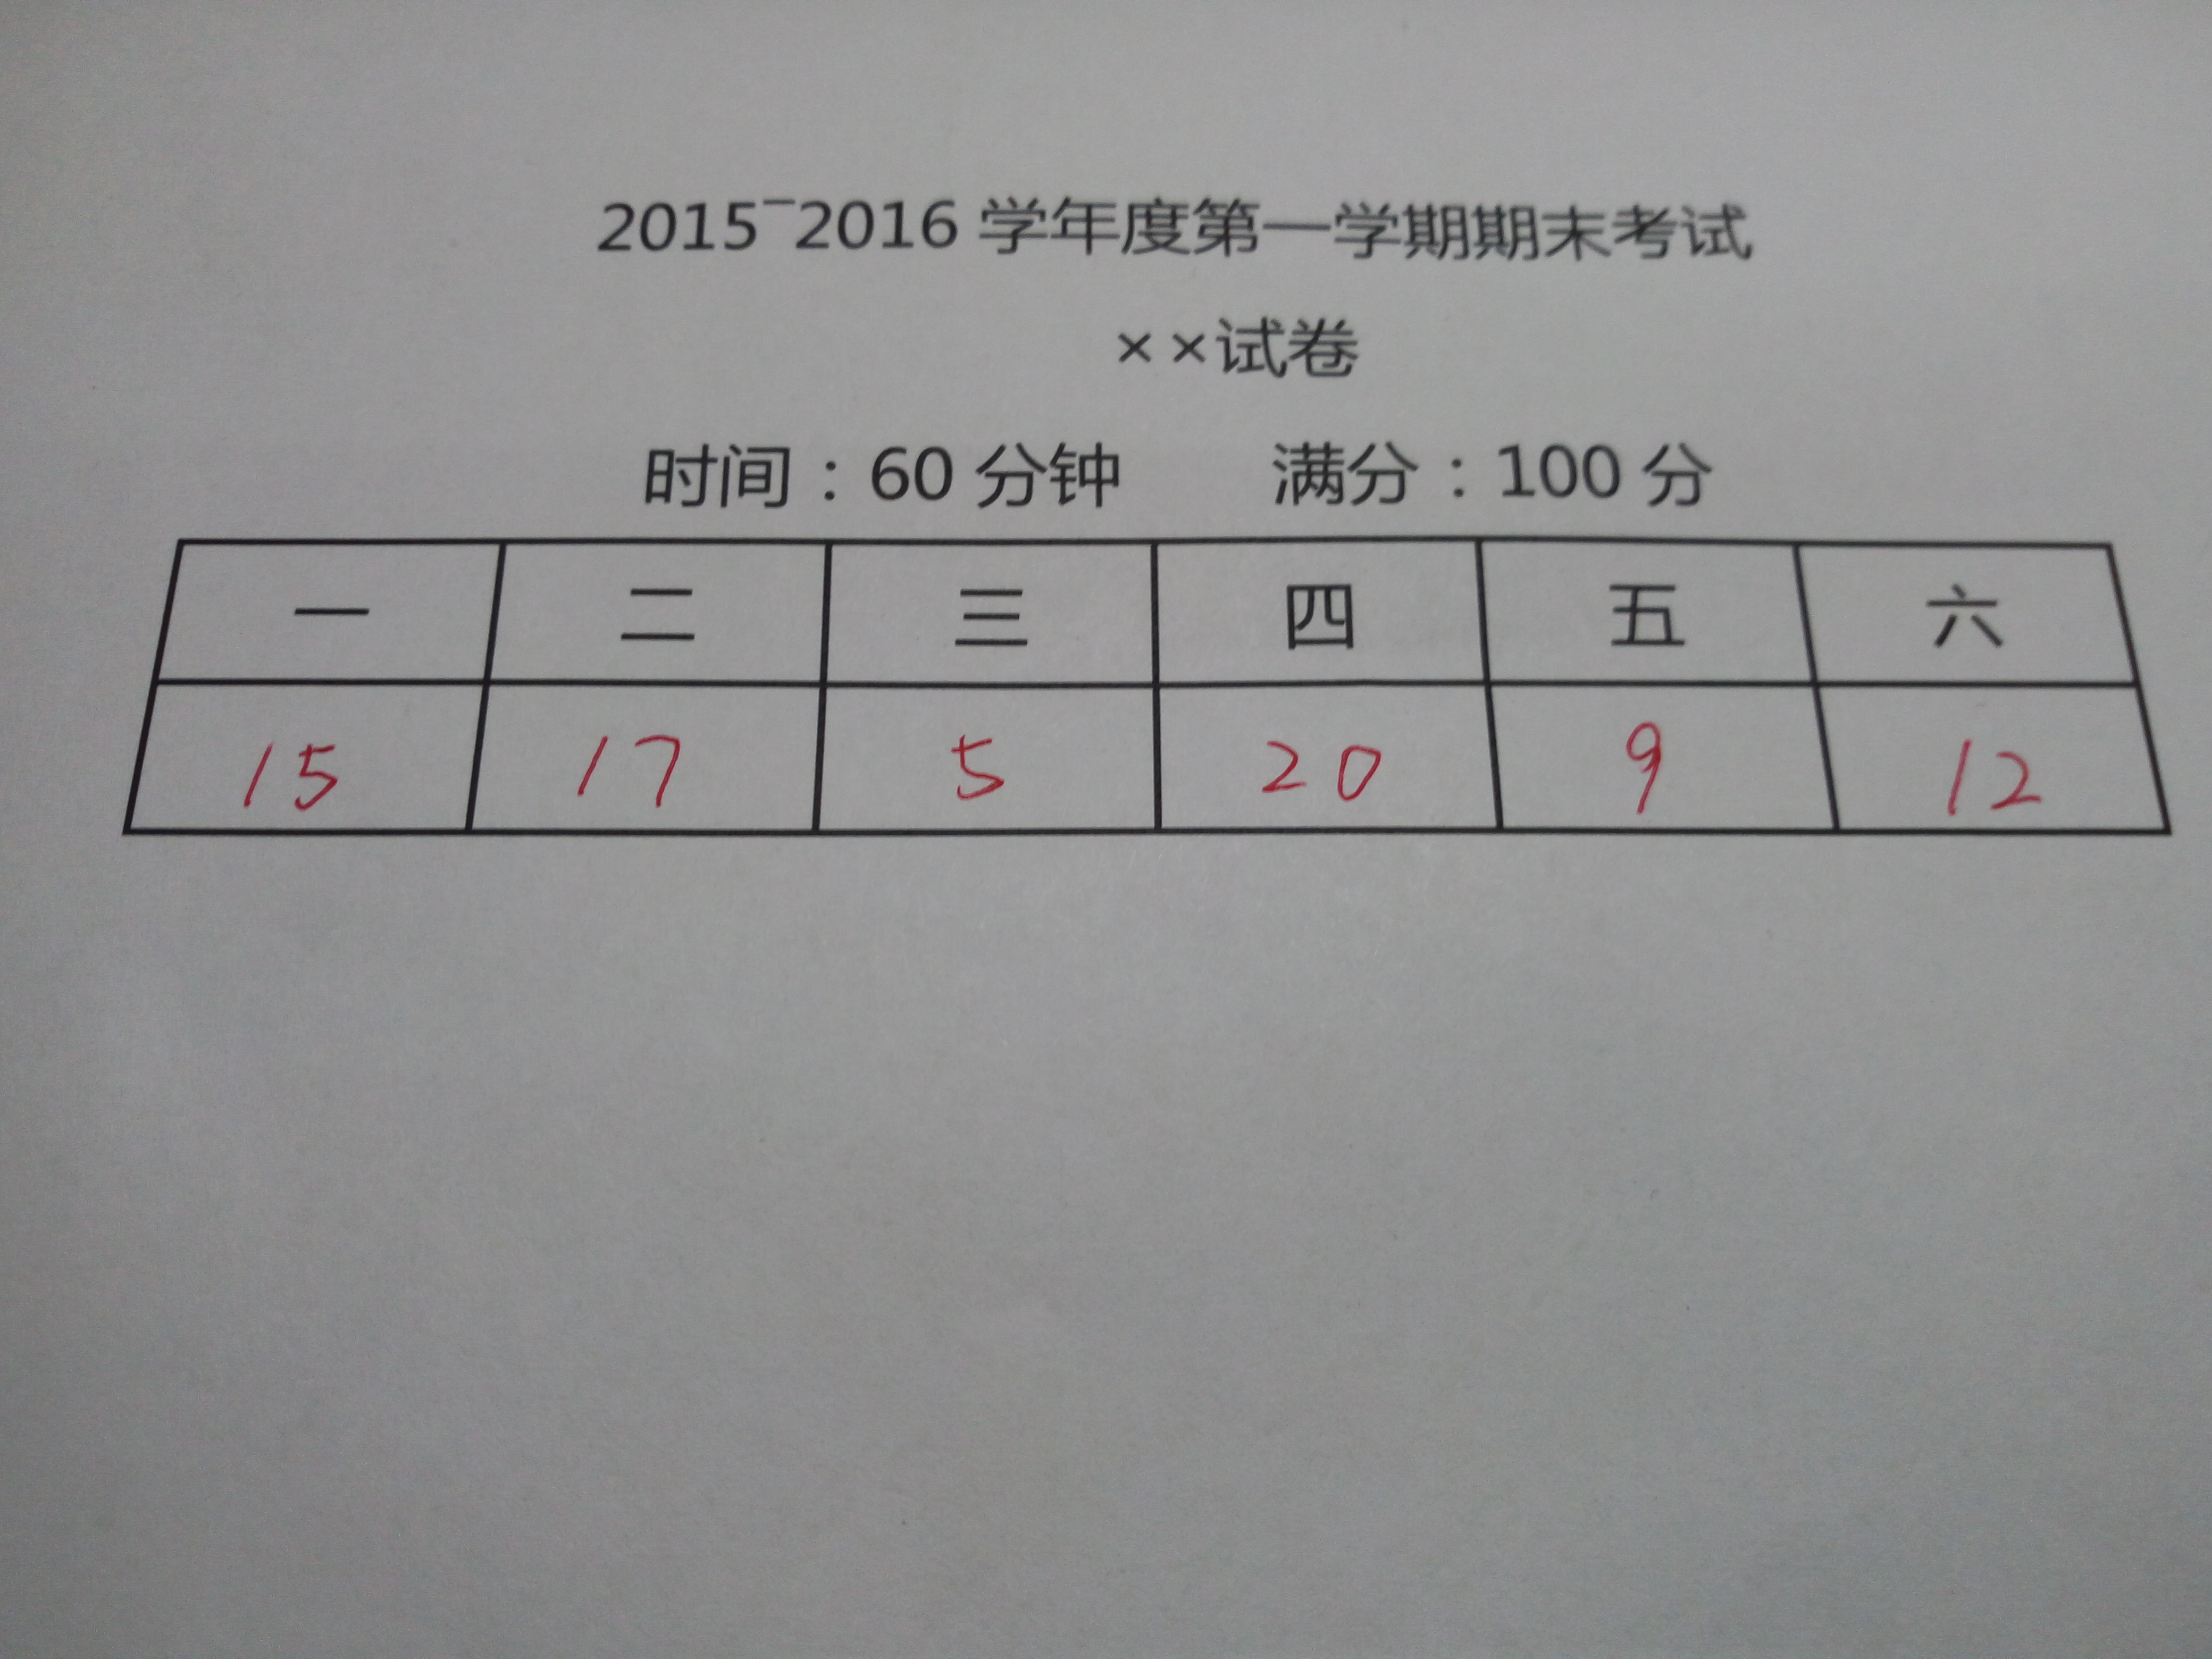 2015-2016 学年度第一学期期末考试
××试卷
时间：60 分钟 满分：100 分
一 二 三 四 五 六
15 17 5 20 9 12